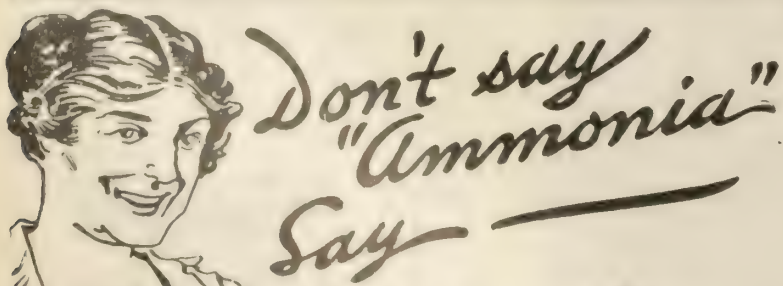 Don't say
"Ammonia"
Say